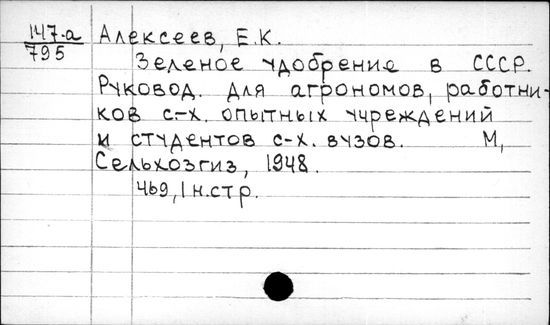 147-а
795
Алексеев, Е.К.
Зеленое удобрение в СССР.
Руковод. для агрономов, работни-
ков с.-х. опытных учреждений
и студентов с-х. вузов. М,
Сельхозгиз, 1948.
469, 1 н.стр.